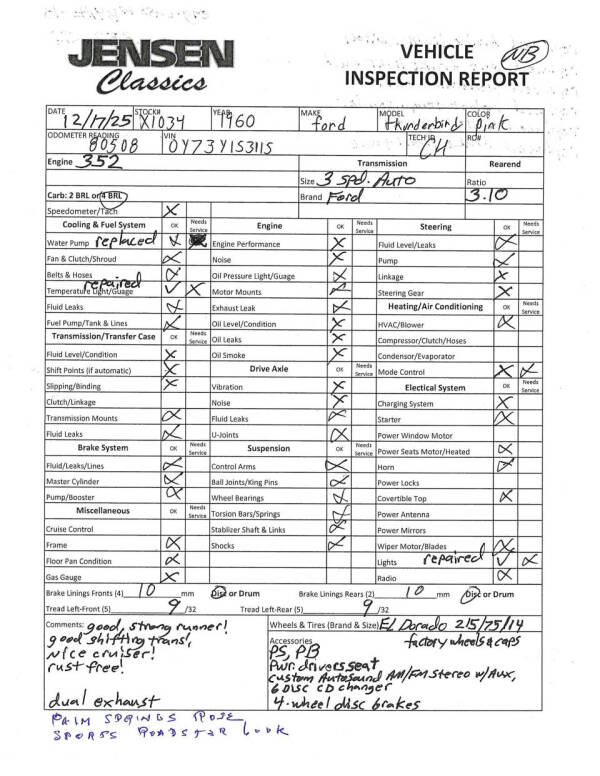 JENSEN
Classics
VEHICLE
INSPECTION REPORT
NB
DATE 12/17/25 STOCK# X1034 YEAR 1960 MAKE Ford MODEL thunderbird COLOR Pink
ODOMETER READING 80508 VIN 0Y73Y153115 TECH ID CH RO#
Engine 352 Transmission Rearend
Size 3 spd. Auto Ratio
Carb: 2 BRL or 4 BRL Brand Ford 3.10
Speedometer/Tach X
Cooling & Fuel System OK Needs Service Engine OK Needs Service Steering OK Needs Service
Water Pump replaced Engine Performance X Fluid Level/Leaks X
Fan & Clutch/Shroud X Noise X Pump X
Belts & Hoses X Oil Pressure Light/Guage X Linkage X
Temperature Light/Guage repaired ✓ X Motor Mounts X Steering Gear X
Fluid Leaks X Exhaust Leak X Heating/Air Conditioning OK Needs Service
Fuel Pump/Tank & Lines X Oil Level/Condition X HVAC/Blower X
Transmission/Transfer Case OK Needs Service Oil Leaks X Compressor/Clutch/Hoses
Fluid Level/Condition X Oil Smoke X Condensor/Evaporator
Shift Points (if automatic) X Drive Axle OK Needs Service Mode Control X X
Slipping/Binding X Vibration X Electical System OK Needs Service
Clutch/Linkage Noise X Charging System X
Transmission Mounts X Fluid Leaks X Starter X
Fluid Leaks X U-Joints X Power Window Motor
Brake System OK Needs Service Suspension OK Needs Service Power Seats Motor/Heated X
Fluid/Leaks/Lines X Control Arms X Horn X
Master Cylinder X Ball Joints/King Pins X Power Locks
Pump/Booster X Wheel Bearings X Covertible Top X
Miscellaneous OK Needs Service Torsion Bars/Springs X Power Antenna
Cruise Control Stablizer Shaft & Links X Power Mirrors
Frame X Shocks X Wiper Motor/Blades X
Floor Pan Condition X Lights repaired ✓ X
Gas Gauge X Radio X
Brake Linings Fronts (4) 10 mm Disc or Drum Brake Linings Rears (2) 10 mm Disc or Drum
Tread Left-Front (5) 9 /32 Tread Left-Rear (5) 9 /32
Comments: good, strong runner! Wheels & Tires (Brand & Size) EL Dorado 215/75/14
good shifting trans! Accessories factory wheels & caps
nice cruiser! PS, PB
rust free! Pwr drivers seat
custom Autosound AM/FM Stereo w/Aux,
6 DISC CD changer
dual exhaust 4-wheel disc brakes
PALM SPRINGS ROSE
SPORTS ROADSTER LOOK